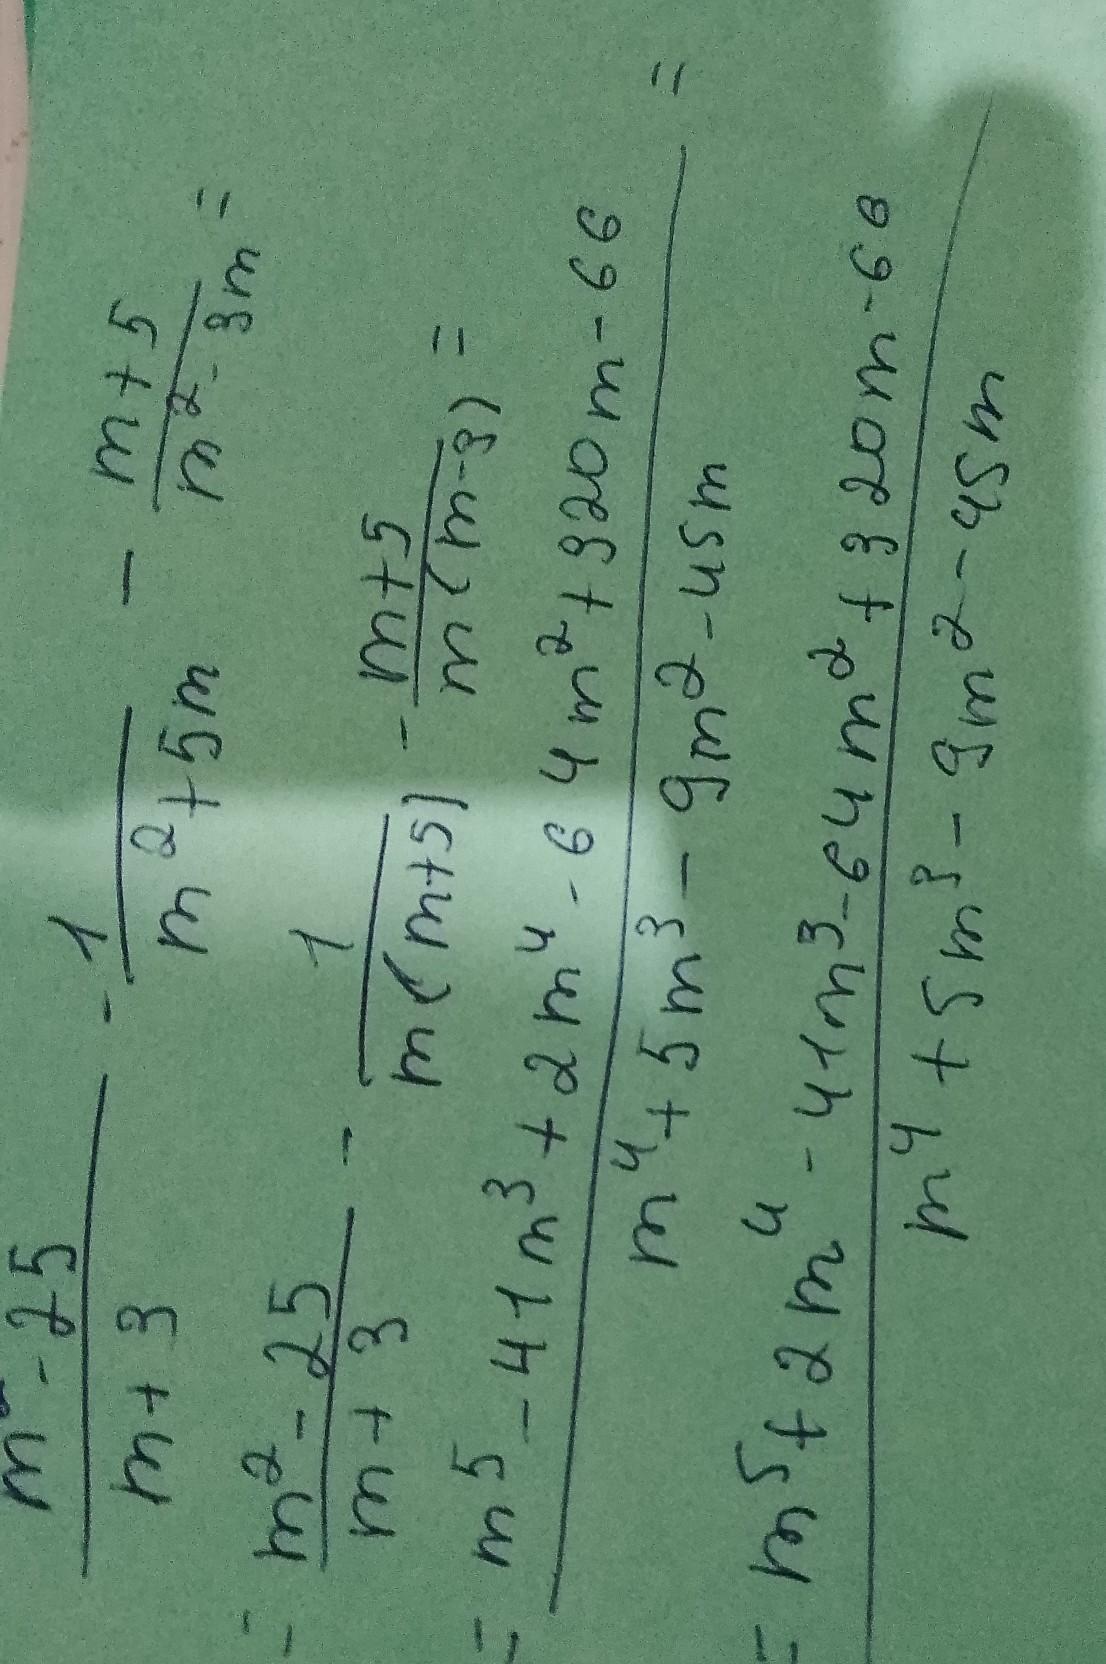 m² - 25 / m + 3 - 1 / m² + 5m - m + 5 / m² - 3m =
= m² - 25 / m + 3 - 1 / m(m+5) - m+5 / m(m-3) =
= m⁵ - 41m³ + 2m⁴ - 64m² + 320m - 66 / m⁴ + 5m³ - 9m² - 45m =
= m⁵ + 2m⁴ - 41m³ - 64m² + 320m - 66 / m⁴ + 5m³ - 9m² - 45m